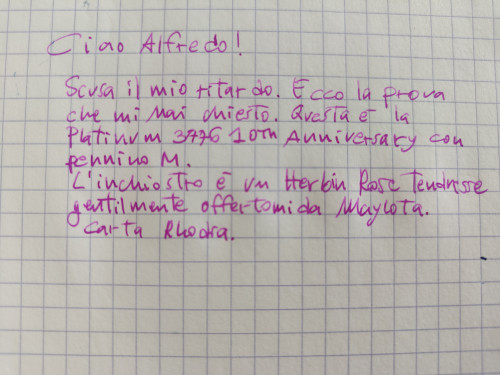 Ciao Alfredo!
Scusa il mio ritardo. Ecco la prova
che mi hai chiesto. Questa è la
Platinum 3776 10th Anniversary con
pennino M.
L'inchiostro è un Herbin Rose Tendresse
gentilmente offertomi da Maylota.
Carta Rhodia.